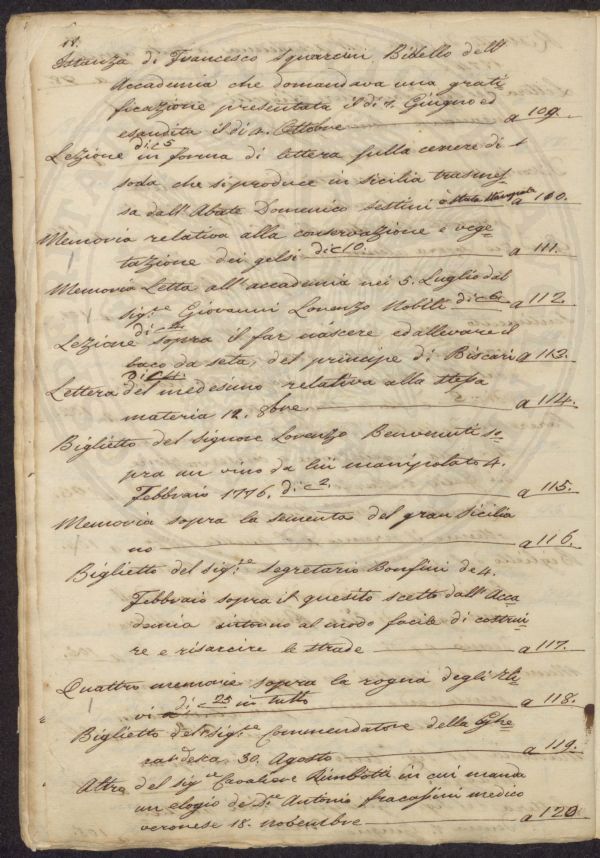 18.
Istanza di Francesco Squarcini Bidello dell'
Accademia che domandava una grati
ficazione presentata il dì 7. Giugno ed
esaudita il dì 4. Ottobre a 109.
di c 5
Lezione in forma di lettera sulla cenere di
soda, che si produce in Sicilia trasmes
sa dall'Abate Domenico Sestini è stata stampata a 110.
Memoria relativa alla conservazione e vege
tazione dei gelsi di c 10. a 111.
Memoria Letta all'accademia nei 5. Luglio dal
sig.re Giovanni Lorenzo Nobili di c 6. a 112.
di c
Lezione sopra il far nascere ed allevare il
baco da seta, del principe di Biscari a 113.
di c 4.
Lettera del medesimo relativa alla stessa
materia 12. 8bre a 114.
Biglietto del Signore Lorenzo Benvenuti so
pra un vino da lui manipolato 4.
Febbraio 1776. di c 2. a 115.
Memoria sopra la sementa del gran Sicilia
no a 116.
Biglietto del sig.re segretario Bonfini de 4.
Febbraio sopra il quesito scelto dall'Acca
demia intorno al modo facile di costrui
re e risarcire le strade a 117.
Quattro memorie sopra la rogna degli Uli
vi di c 25 in tutto a 118.
Biglietto del sig.re Commendatore della Ghe
rardesca, 30. Agosto a 119.
Altro del sig.re Cavaliere Rimbotti in cui manda
un elogio de D.re Antonio Fracassini medico
veronese 18. novembre a 120